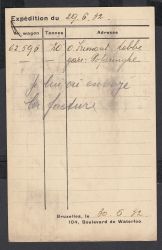 Expédition du 29.6.92
No wagon Tonnes Adresse
62596 20
gare: Poperinghe
Je lui ai envoyé
la facture
Bruxelles, le 30.6.92
104, Boulevard de Waterloo